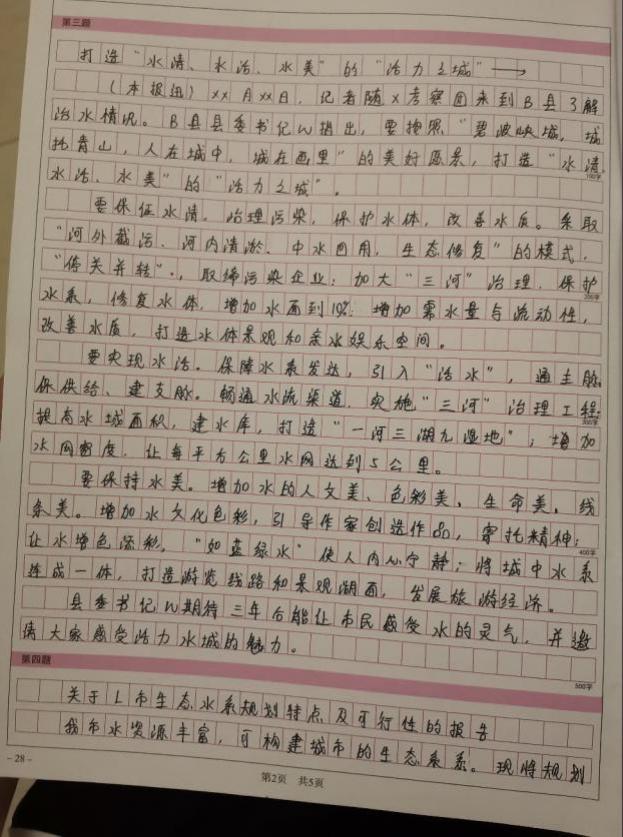 第三题
打造“水清、水活、水美”的“活力之城”
(本报讯)××月××日,记者随×考察团来到B县了解
治水情况。B县县委书记W指出,要按照“碧波映城,城
托青山,人在城中,城在画里”的美好愿景,打造“水清、
100字
水活、水美”的“活力之城”。
要保证水清。治理污染,保护水体,改善水质。采取
“河外截污、河内清淤、中水回用,生态修复”的模式,
“停关并转”,取缔污染企业;加大“三河”治理,保护
200字
水系,修复水体,增加水面到19%;增加需水量与流动性,
改善水质,打造水体景观和亲水娱乐空间。
要实现水活。保障水系发达,引入“活水”,通主脉
保供给、建支脉。畅通水流渠道,实施“三河”治理工程;
300字
提高水域面积,建水库,打造“一河三湖九湿地”;增加
水网密度,让每平方公里水网达到5公里。
要保持水美。增加水的人文美、色彩美、生命美、线
条美。增加水文化色彩,引导作家创造作品,寄托精神;
400字
让水增色添彩,“如蓝绿水”使人内心宁静;将城中水系
连成一体,打造游览线路和景观湖面,发展旅游经济。
县委书记W期待三年后能让市民感受水的灵气,并邀
请大家感受活力水城的魅力。
500字
第四题
关于L市生态水系规划特点及可行性的报告
我市水资源丰富,可构建城市的生态系系。现将规划
- 28 -
第2页 共5页